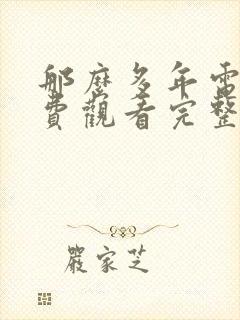 那麼多年電
費觀看完整
嚴家芝